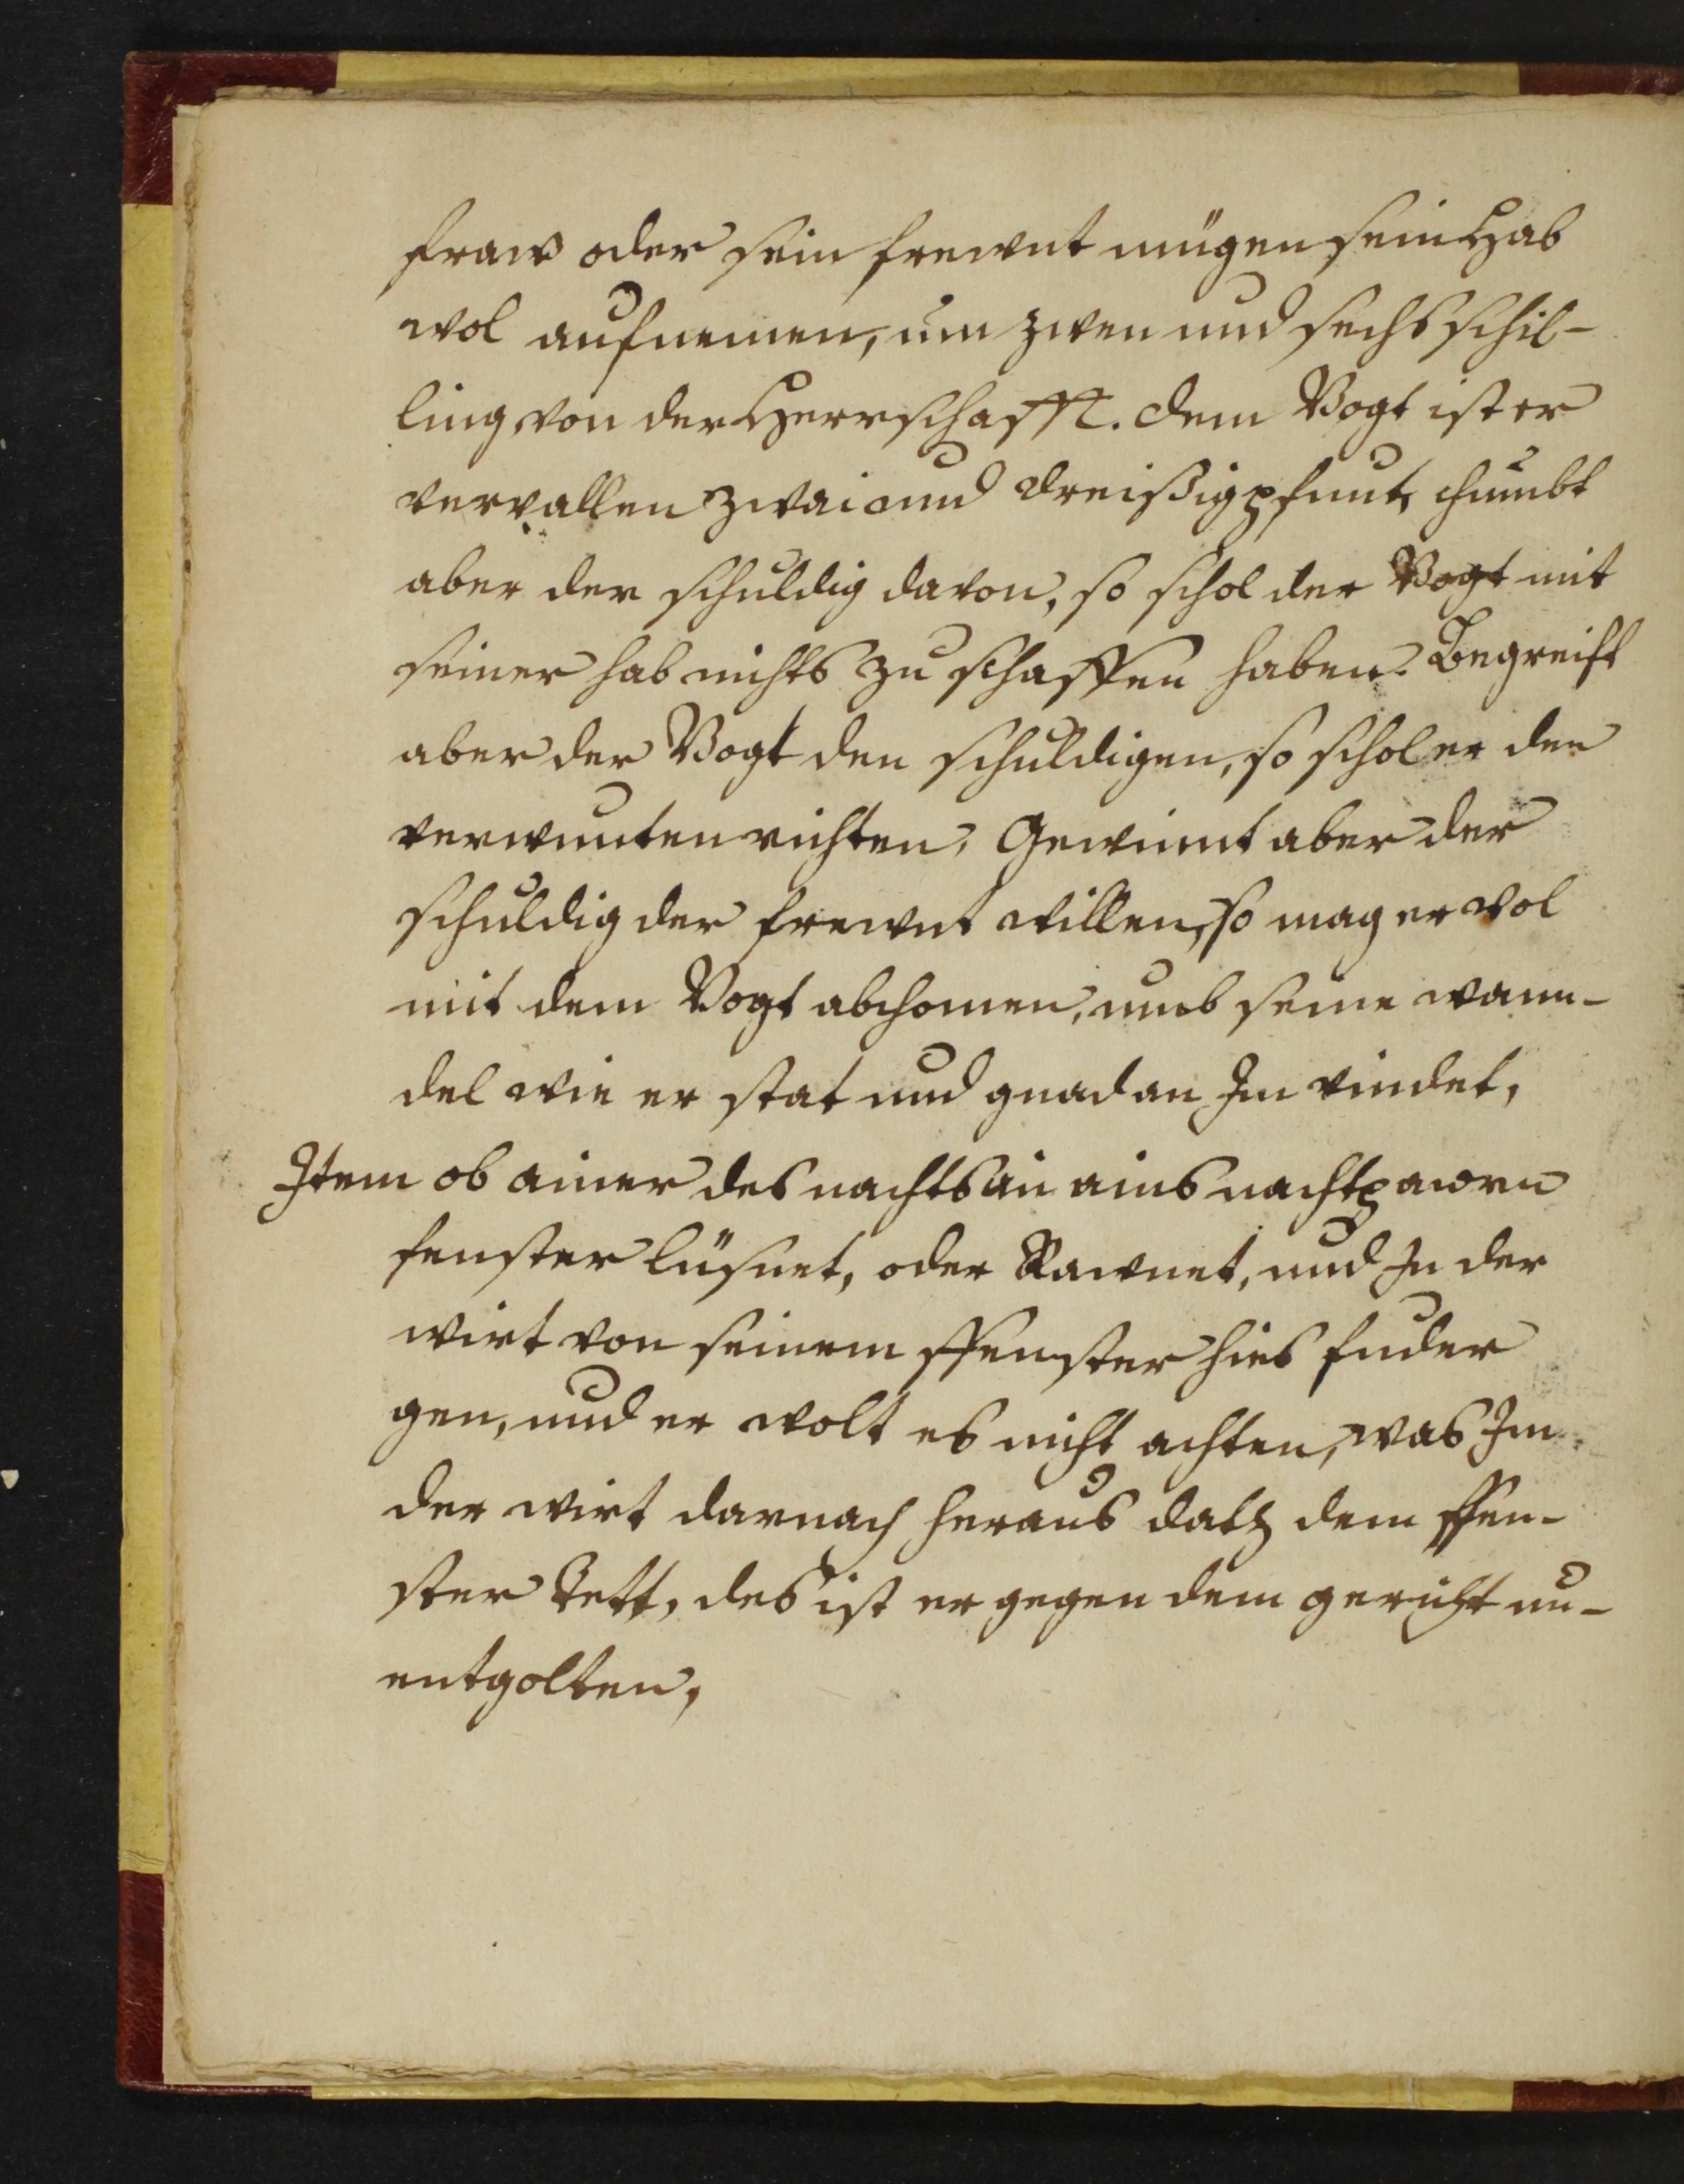 fraw oder sein frewnt mügen sein Hab
wol aufnemen, um zwen und sechs schil-
ling von der Herrschafft. dem Vogt ist er
vervallen zwai und dreißig pfunt, chumbt
aber der schuldig davon, so schol der Vogt mit
seiner hab nichts zu schaffen haben. Begreift
aber der Vogt den schuldigen, so schol er den
verwunten richten. Gewinnt aber der
schuldig der frewnt willen, so mag er wol
mit dem Vogt abchomen, umb seine wann-
del wie er stat und gnad an Im vindet,
Item ob ainer des nachts an ains nachtpawrn
fenster lüsnet, oder Rawnet, und In der
wirt von seinem ffenster hies fuder
gen, und er wolt es nicht achten, was Im
der wirt darnach heraus datz dem ffen-
ster Tett, des ist er gegen dem gericht un-
entgolten,